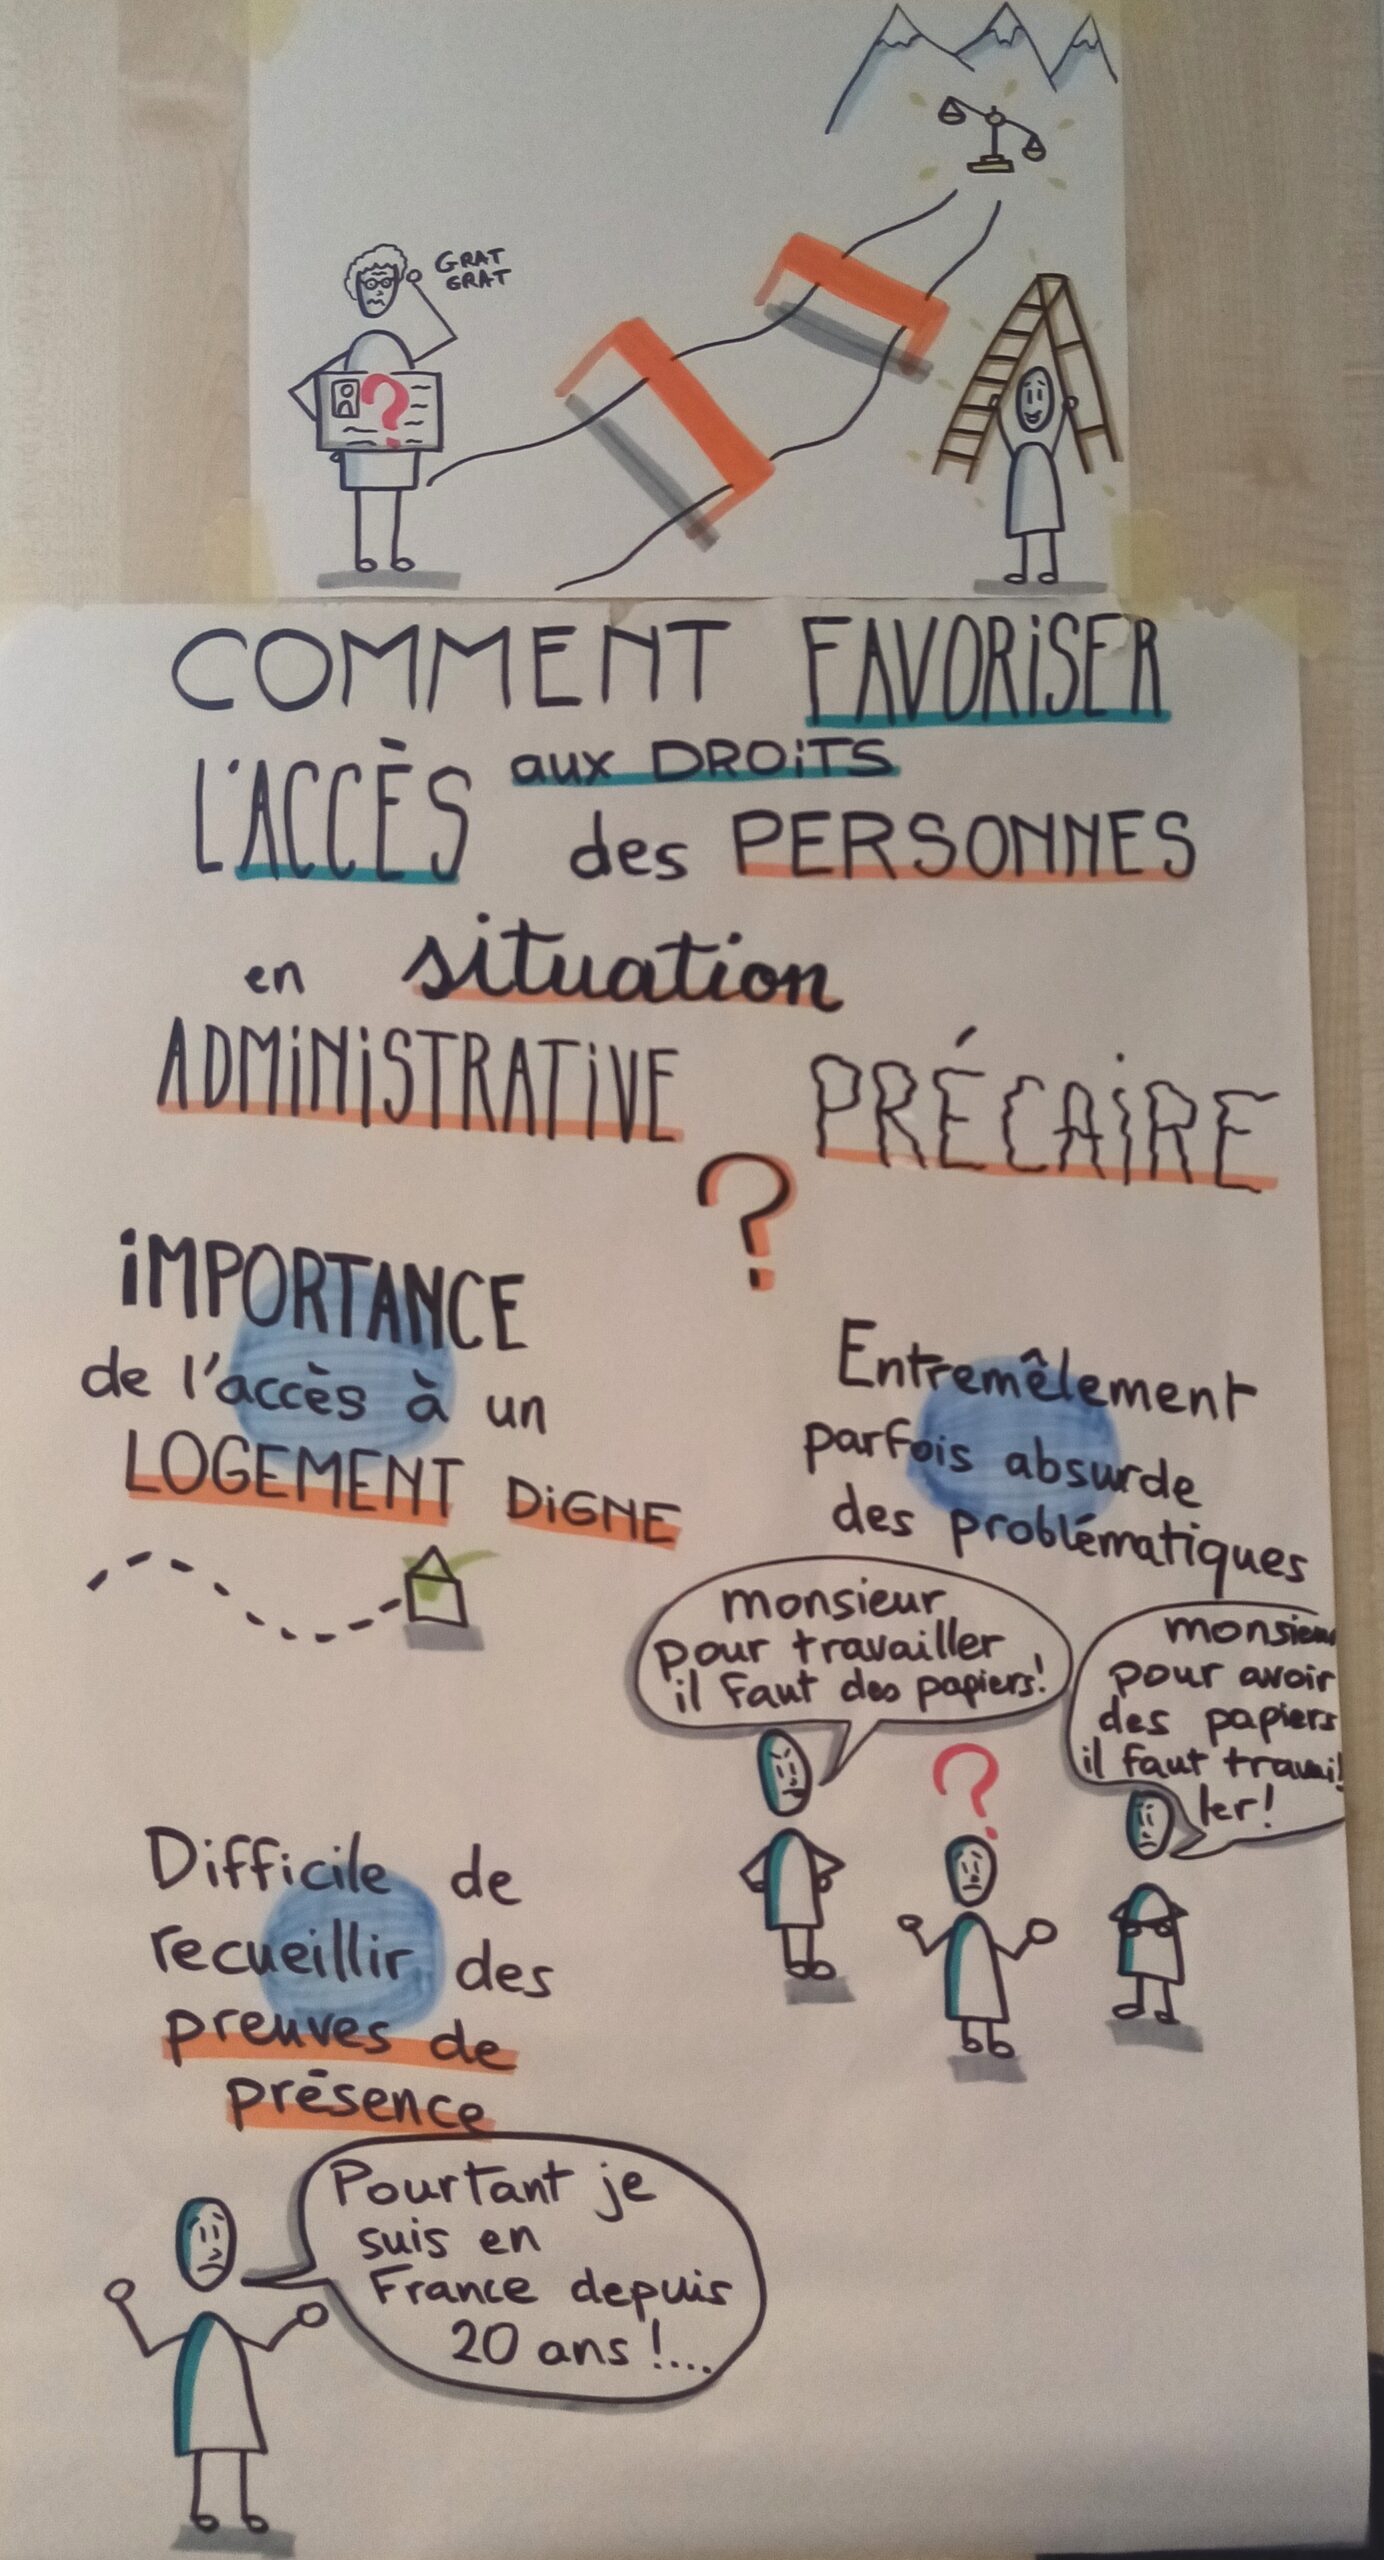 GRAT
GRAT
?
COMMENT FAVORISER
L'ACCÈS aux DROITS
des PERSONNES
en situation
ADMINISTRATIVE PRÉCAIRE
?
IMPORTANCE
de l'accès à un
LOGEMENT DIGNE
Entremêlement
parfois absurde
des problématiques
monsieur
pour travailler
il faut des papiers!
monsieur
pour avoir
des papiers
il faut travail
ler!
?
Difficile de
recueillir des
preuves de
présence
Pourtant je
suis en
France depuis
20 ans !....